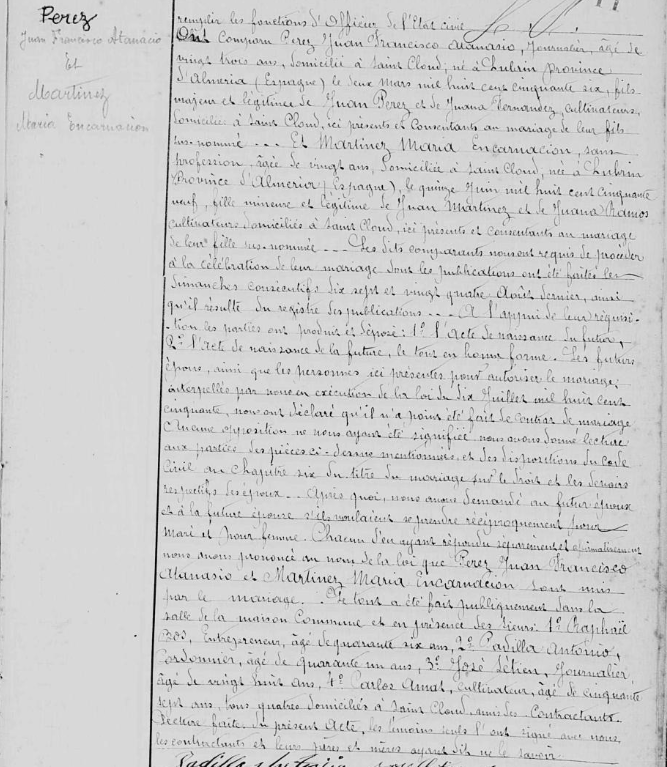 Perez
Juan Francisco Atanacio
Et
Martinez
Maria Encarnacion
remplir les fonctions d'Officier de l'Etat civil
Ont Comparu Perez Juan Francisco Atanasio, Journalier, âgé de
vingt trois ans, domicilié à Saint Cloud, né à Lubrin province
d'Almeria (Espagne) le deux Mars mil huit cent cinquante six, fils
majeur et légitime de Juan Perez et de Juana Fernandez, cultivateurs,
domiciliés à Saint Cloud, ici présents et consentants au mariage de leur fils
sus-nommé - - - Et Martinez Maria Encarnacion, sans
profession, âgée de vingt ans, domiciliée à Saint Cloud, née à Lubrin
Province d'Almeria (Espagne), le quinze Juin mil huit cent cinquante
neuf, fille mineure et légitime de Juan Martinez et de Juana Ramos
cultivateurs domiciliés à Saint Cloud, ici présents et consentants au mariage
de leur fille sus-nommée - - - Les dits comparants nous ont requis de procéder
à la célébration de leur mariage dont les publications ont été faites les
Dimanches consécutifs dix sept et vingt quatre Août dernier, ainsi
qu'il résulte du registre des publications - - - A l'appui de leur réquisi-
tion les parties ont produit et déposé: 1º l'Acte de naissance du futur,
2º l'Acte de naissance de la future, le tout en bonne forme. Les futurs
époux, ainsi que les personnes ici présentes pour autoriser le mariage,
interpellés par nous en exécution de la loi du dix Juillet mil huit cent
cinquante, nous ont déclaré qu'il n'a point été fait de contrat de mariage
Aucune opposition ne nous ayant été signifiée nous avons donné lecture
aux parties des pièces ci-dessus mentionnées, et des dispositions du code
Civil au chapitre six du titre du mariage sur le droit et les devoirs
respectifs des époux - - Après quoi, nous avons demandé au futur époux
et à la future épouse s'ils voulaient se prendre réciproquement pour
mari et pour femme. Chacun d'eux ayant répondu séparément et affirmativement
nous avons prononcé au nom de la loi que Perez Juan Francisco
Atanasio et Martinez Maria Encarnacion sont unis
par le mariage. Le tout a été fait publiquement dans la
salle de la maison Commune et en présence des Sieurs: 1º Raphaël
Ros, Entrepreneur, âgé de quarante six ans, 2º Padilla Antonio,
Cordonnier, âgé de quarante un ans, 3º José Journalier,
âgé de vingt huit ans, 4º Carlos Amat, Cultivateur, âgé de cinquante
sept ans, tous quatre domiciliés à Saint Cloud, amis des Contractants.
Lecture faite du présent Acte, les témoins seuls l'ont signé avec nous
les contractants et leurs pères et mères ayant dit ne le savoir.
Padilla Antonio